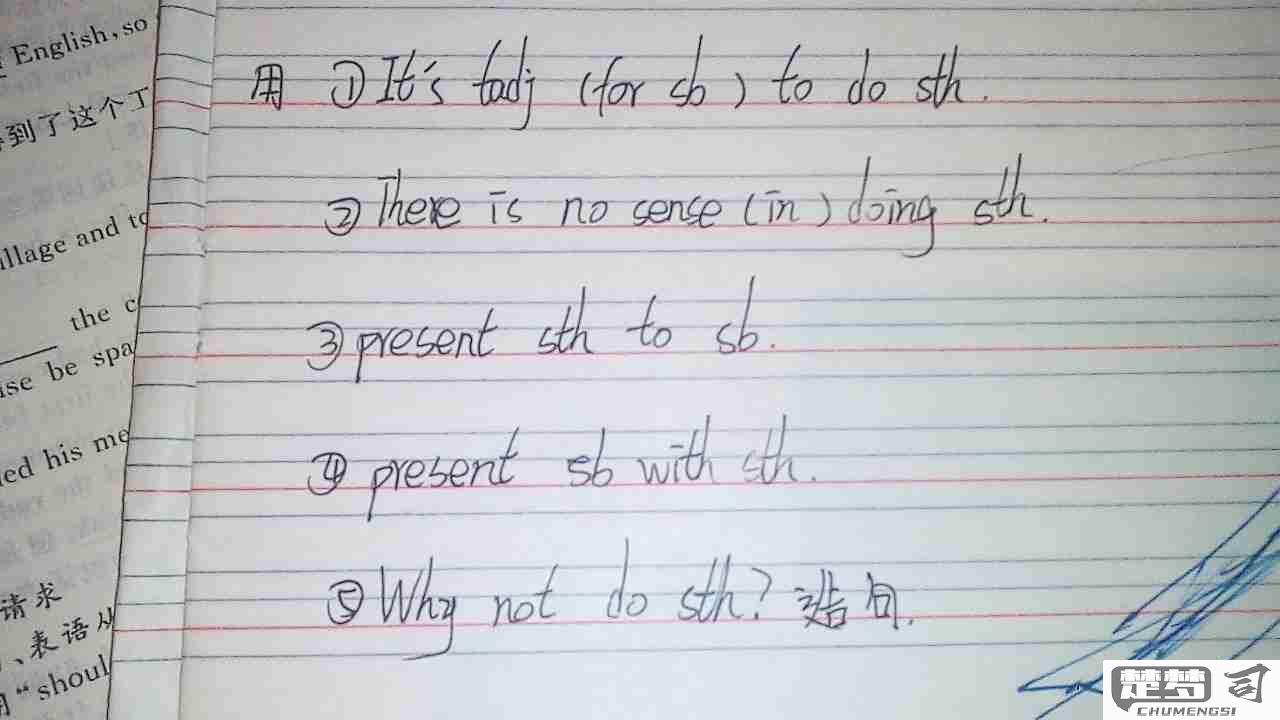 English, so
到了这个丁
illage and to
the c
ise be spa
ed his me
请求
、表语从
用“shoul
用 ①It's +adj (for sb) to do sth.
②There is no sense (in) doing sth.
③present sth to sb.
④present sb with sth.
⑤Why not do sth? 造句.
楚梦司
CHUMENGSI